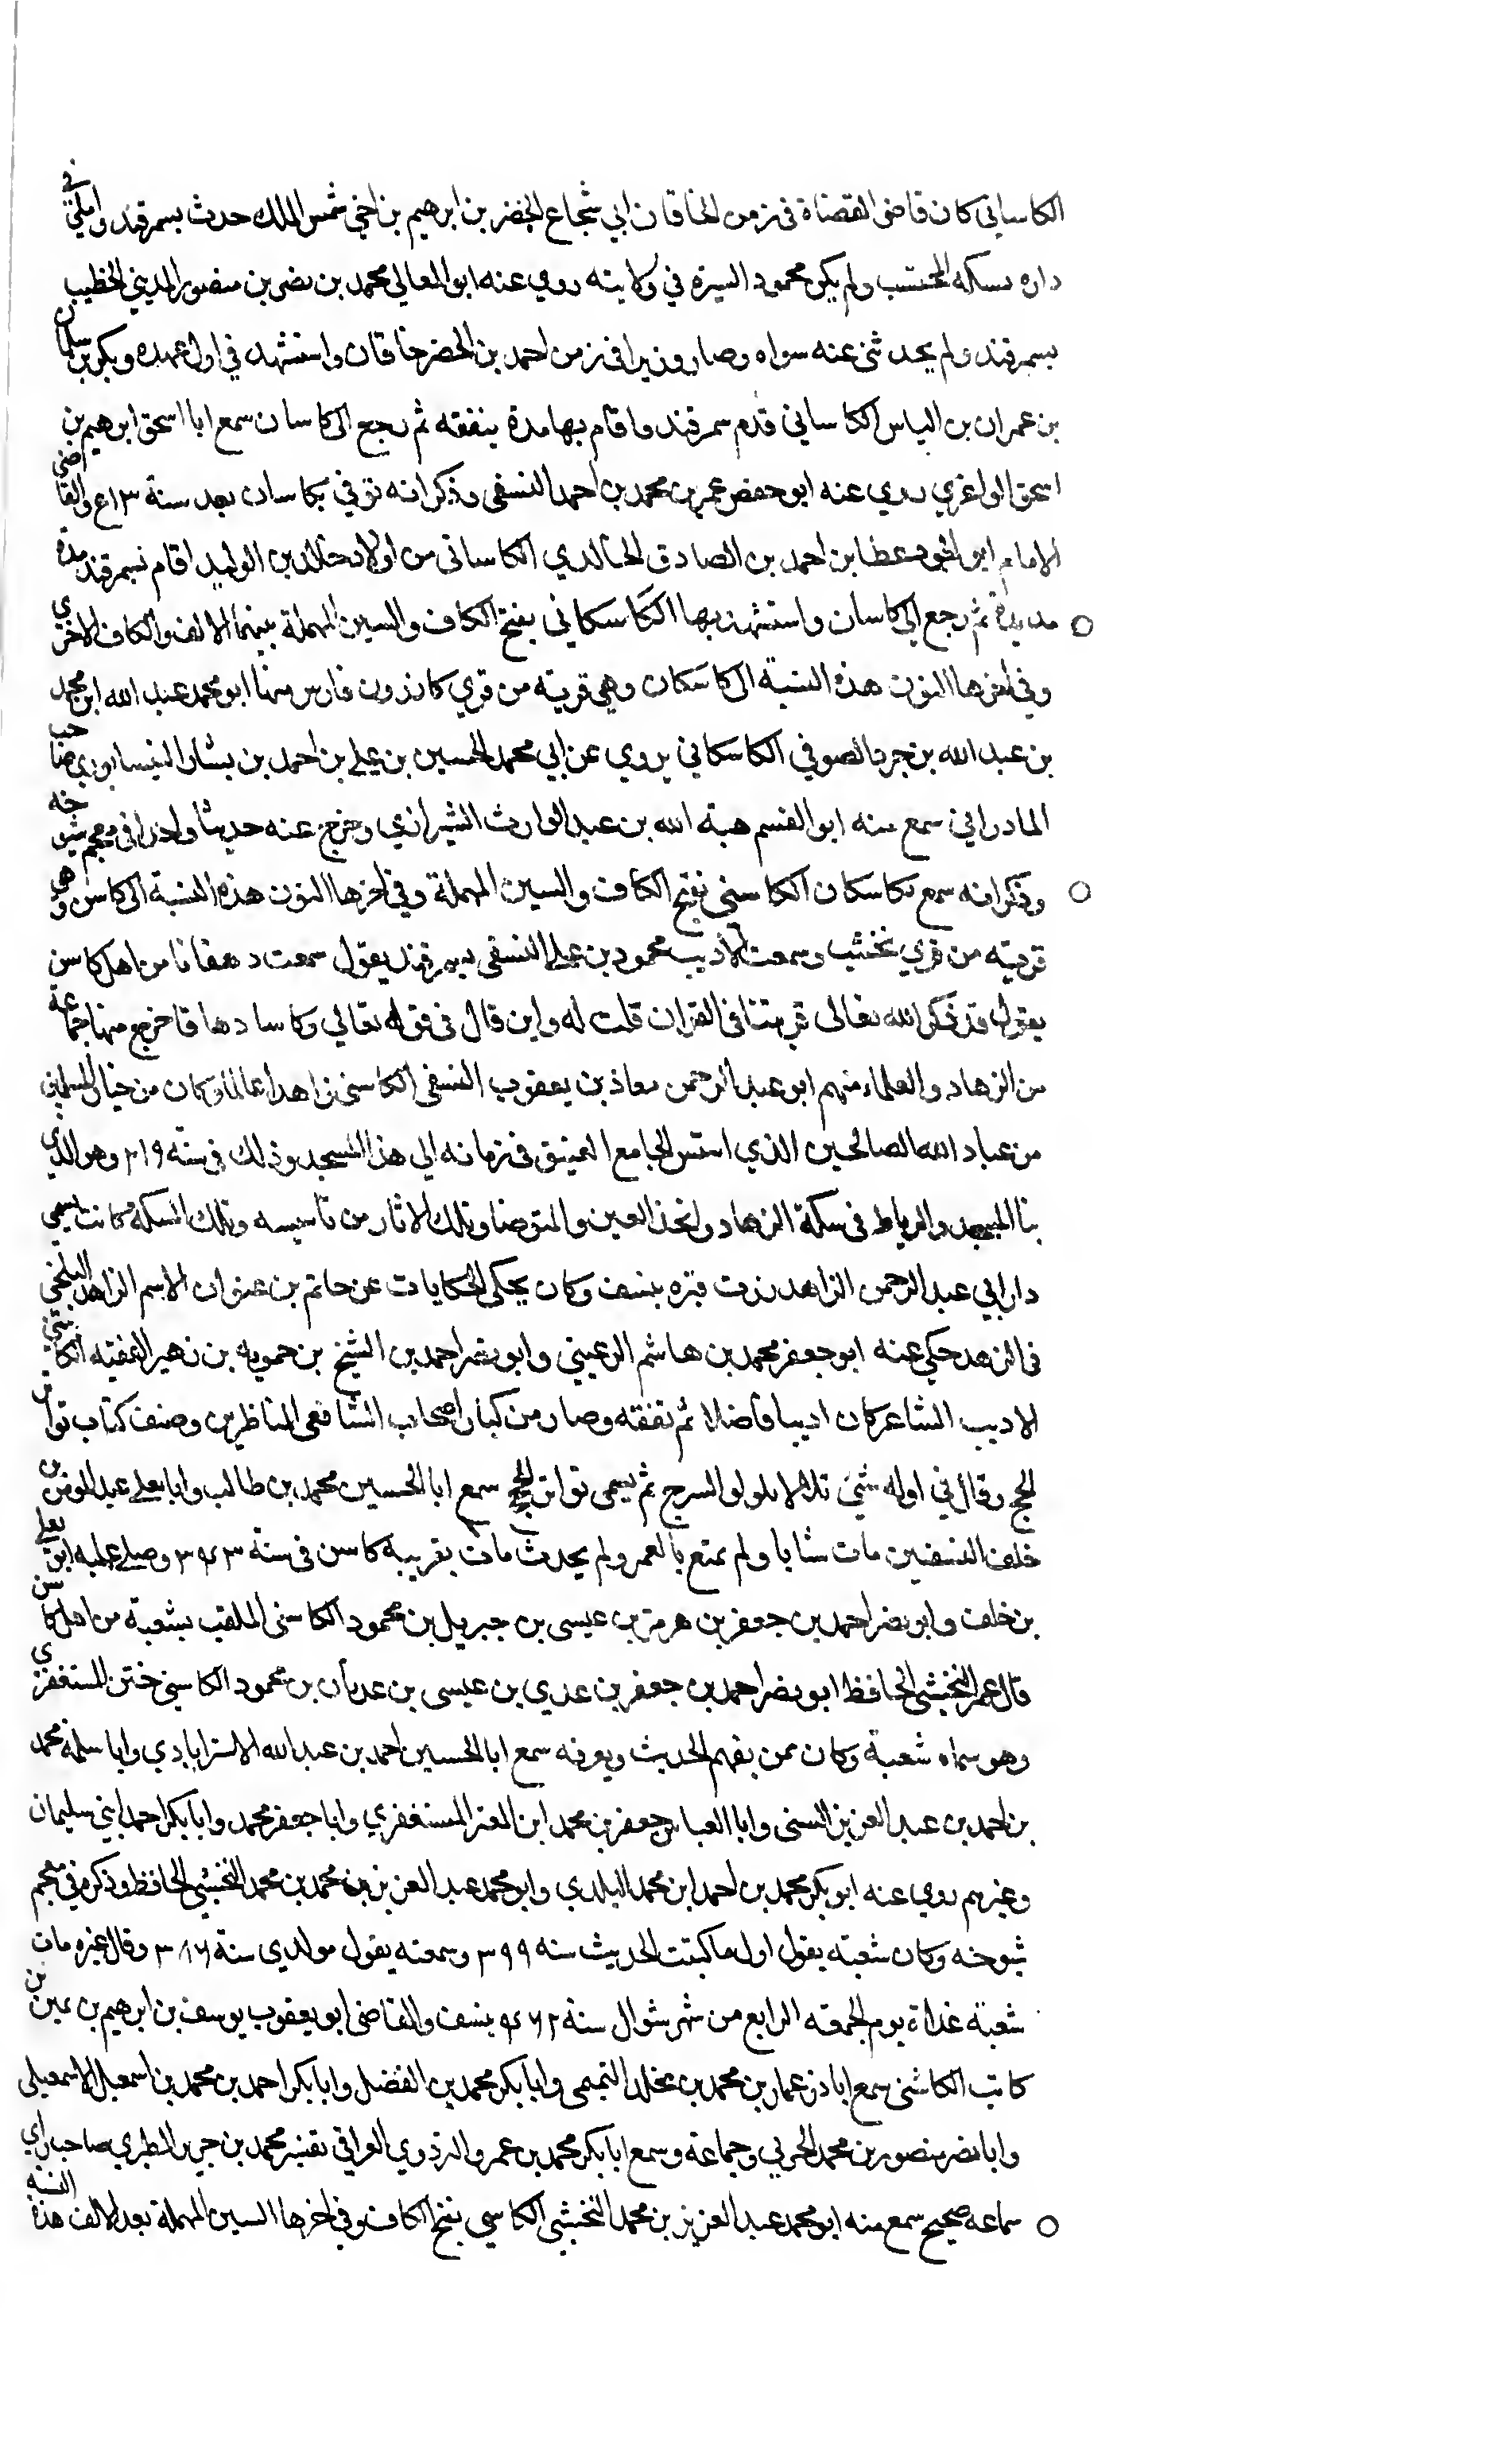 الكاساني كان قاضي القضاة في زمن الخاقان ابي شجاع الخضر بن ابرهيم بن اخي شمس الملك حدث بسمرقند واملي في
داره بسكه المحتسب ولم يكن محمود السيرة في ولايته روي عنه ابو المعالي محمد بن نصر بن منصور المديني الخطيب
بسمرقند ولم يحدثني عنه سواه وصار وزيرا في زمن احمد بن الخضر خاقان واستشهد في اول عهده وبكر بن سلمان
بن عمران بن الياس الكاساني قدم سمرقند واقام بها مدة يتفقه ثم رجع الي كاسان سمع ابا اسحق ابرهيم بن
اسحق الواغزي روي عنه ابو حفص عمر بن محمد بن احمد النسفي وذكر انه توفي بكاسان بعد سنة والقاضي
الامام ابو عطا بن احمد بن الصادق الخالدي الكاساني من اولاد خالد بن الوليد اقام بسمرقند مدة
مديدة ثم رجع الي كاسان واستشهد بها الكاسكاني بفتح الكاف والسين المهملة بينهما الالف والكاف الاخري
وفي اخرها النون هذه النسبة الي كاسكان وهي قرية من قري كازرون فارس منها ابو محمد عبد الله ابن محمد
بن عبد الله بن الصوفي الكاسكاني يروي عن ابي محمد الحسين بن علي بن احمد بن بشار النيسابوري صاحب
المادراني سمع منه ابو القسم هبة الله بن عبد الوارث الشيرازي وخرج عنه حديثا واحدا في معجم شيوخه
وذكر انه سمع بكاسكان الكاسني بفتح الكاف والسين المهملة وفي اخرها النون هذه النسبة الي كاسن وهي
قرية من قري نخشب وسمعت الاديب محمود بن علي النسفي بسمرقند يقول سمعت دهقانا من اهل كاسن
يقول قد ذكر الله تعالي قريتنا في القران قلت له واين قال في قوله تعالي وكاسا دهاقا خرج منها جماعة
من الزهاد والعلماء منهم ابو عبد الرحمن معاذ بن يعقوب النسفي الكاسني زاهدا عالما وكان من خيار المسلمين
من عباد الله الصالحين الذي اسس الجامع العتيق في زمانه الي هذا المسجد وذلك في سنة ٢١٩ وهو الذي
بنا المسجد والرباط في سكة الزهاد واتخذ العين والمتوضا وتلك الاثار من تاسيسه وتلك السكة كانت تسمي
دار ابي عبد الرحمن الزاهد زرت قبره بنسف وكان يحكي الحكايات عن حاتم بن عنوان الاسم الزاهد البلخي
في الزهد حكي عنه ابو جعفر محمد بن هاشم الرعيني وابو نصر احمد بن الشيخ بن حمويه بن زهير الفقيه الكاسني
الاديب الشاعر كان اديبا فاضلا ثم تفقه وصار من كبار اصحاب الشافعي المناظرين وصنف كتاب تواتر
الحج وقال في اوله شيي تلالا لولو السرج ثم يسمي تواتر الحج سمع ابا الحسين محمد بن طالب وابا يعلي عبد المومن بن
خلف النسفيين مات شابا ولم يمتع بالعمر ولم يحدث مات بقرية كاسن في سنة ٣٤٣ وصلي عليه ابو يعلي
بن خلف وابو نصر احمد بن جعفر بن هرمز بن عيسي بن جبريل بن محمود الكاسني الملقب بشعبة من اهل كاسن
قال عمر النخشبي الحافظ ابو نصر احمد بن جعفر بن عدي بن عيسي بن عدنان بن محمود الكاسني ختن المستغفري
وهو سماه شعبة وكان ممن يفهم الحديث ويعرفه سمع ابا الحسين احمد بن عبد الله الاستراباذي وابا سلمة محمد
بن احمد بن عبد العزيز النسفي وابا العباس جعفر بن محمد ابن المعتز المستغفري وابا جعفر محمد وابا بكر احمد ابني سليمان
وغيرهم روي عنه ابو بكر محمد بن احمد ابن محمد البلدي وابو محمد عبد العزيز بن محمد بن محمد النخشبي الحافظ وذكره في معجم
شيوخه وكان شعبة يقول اول ما كتبت الحديث سنه ٣٩٩ وسمعته يقول مولدي سنة ٣٨٦ وقال غيره مات
شعبة غداة يوم الجمعة الرابع من شهر شوال سنة بنسف والقاضي ابو يعقوب يوسف بن ابرهيم بن بن
كاتب الكاسني سمع ابا ذر عمار بن محمد بن مخلد التميمي وابا بكر محمد بن الفضل وابا بكر احمد بن محمد بن اسمعيل الاسمعيلي
وابا نصر منصور بن محمد الحربي وجماعة وسمع ابا بكر محمد بن عمر والتزدوي العراقي تفسير محمد بن جرير الطبري صاحب راي
سماعه صحيح سمع منه ابو محمد عبد العزيز بن محمد النخشبي الكاسي بفتح الكاف وفي اخرها السين المهملة بعد الالف هذه النسبة